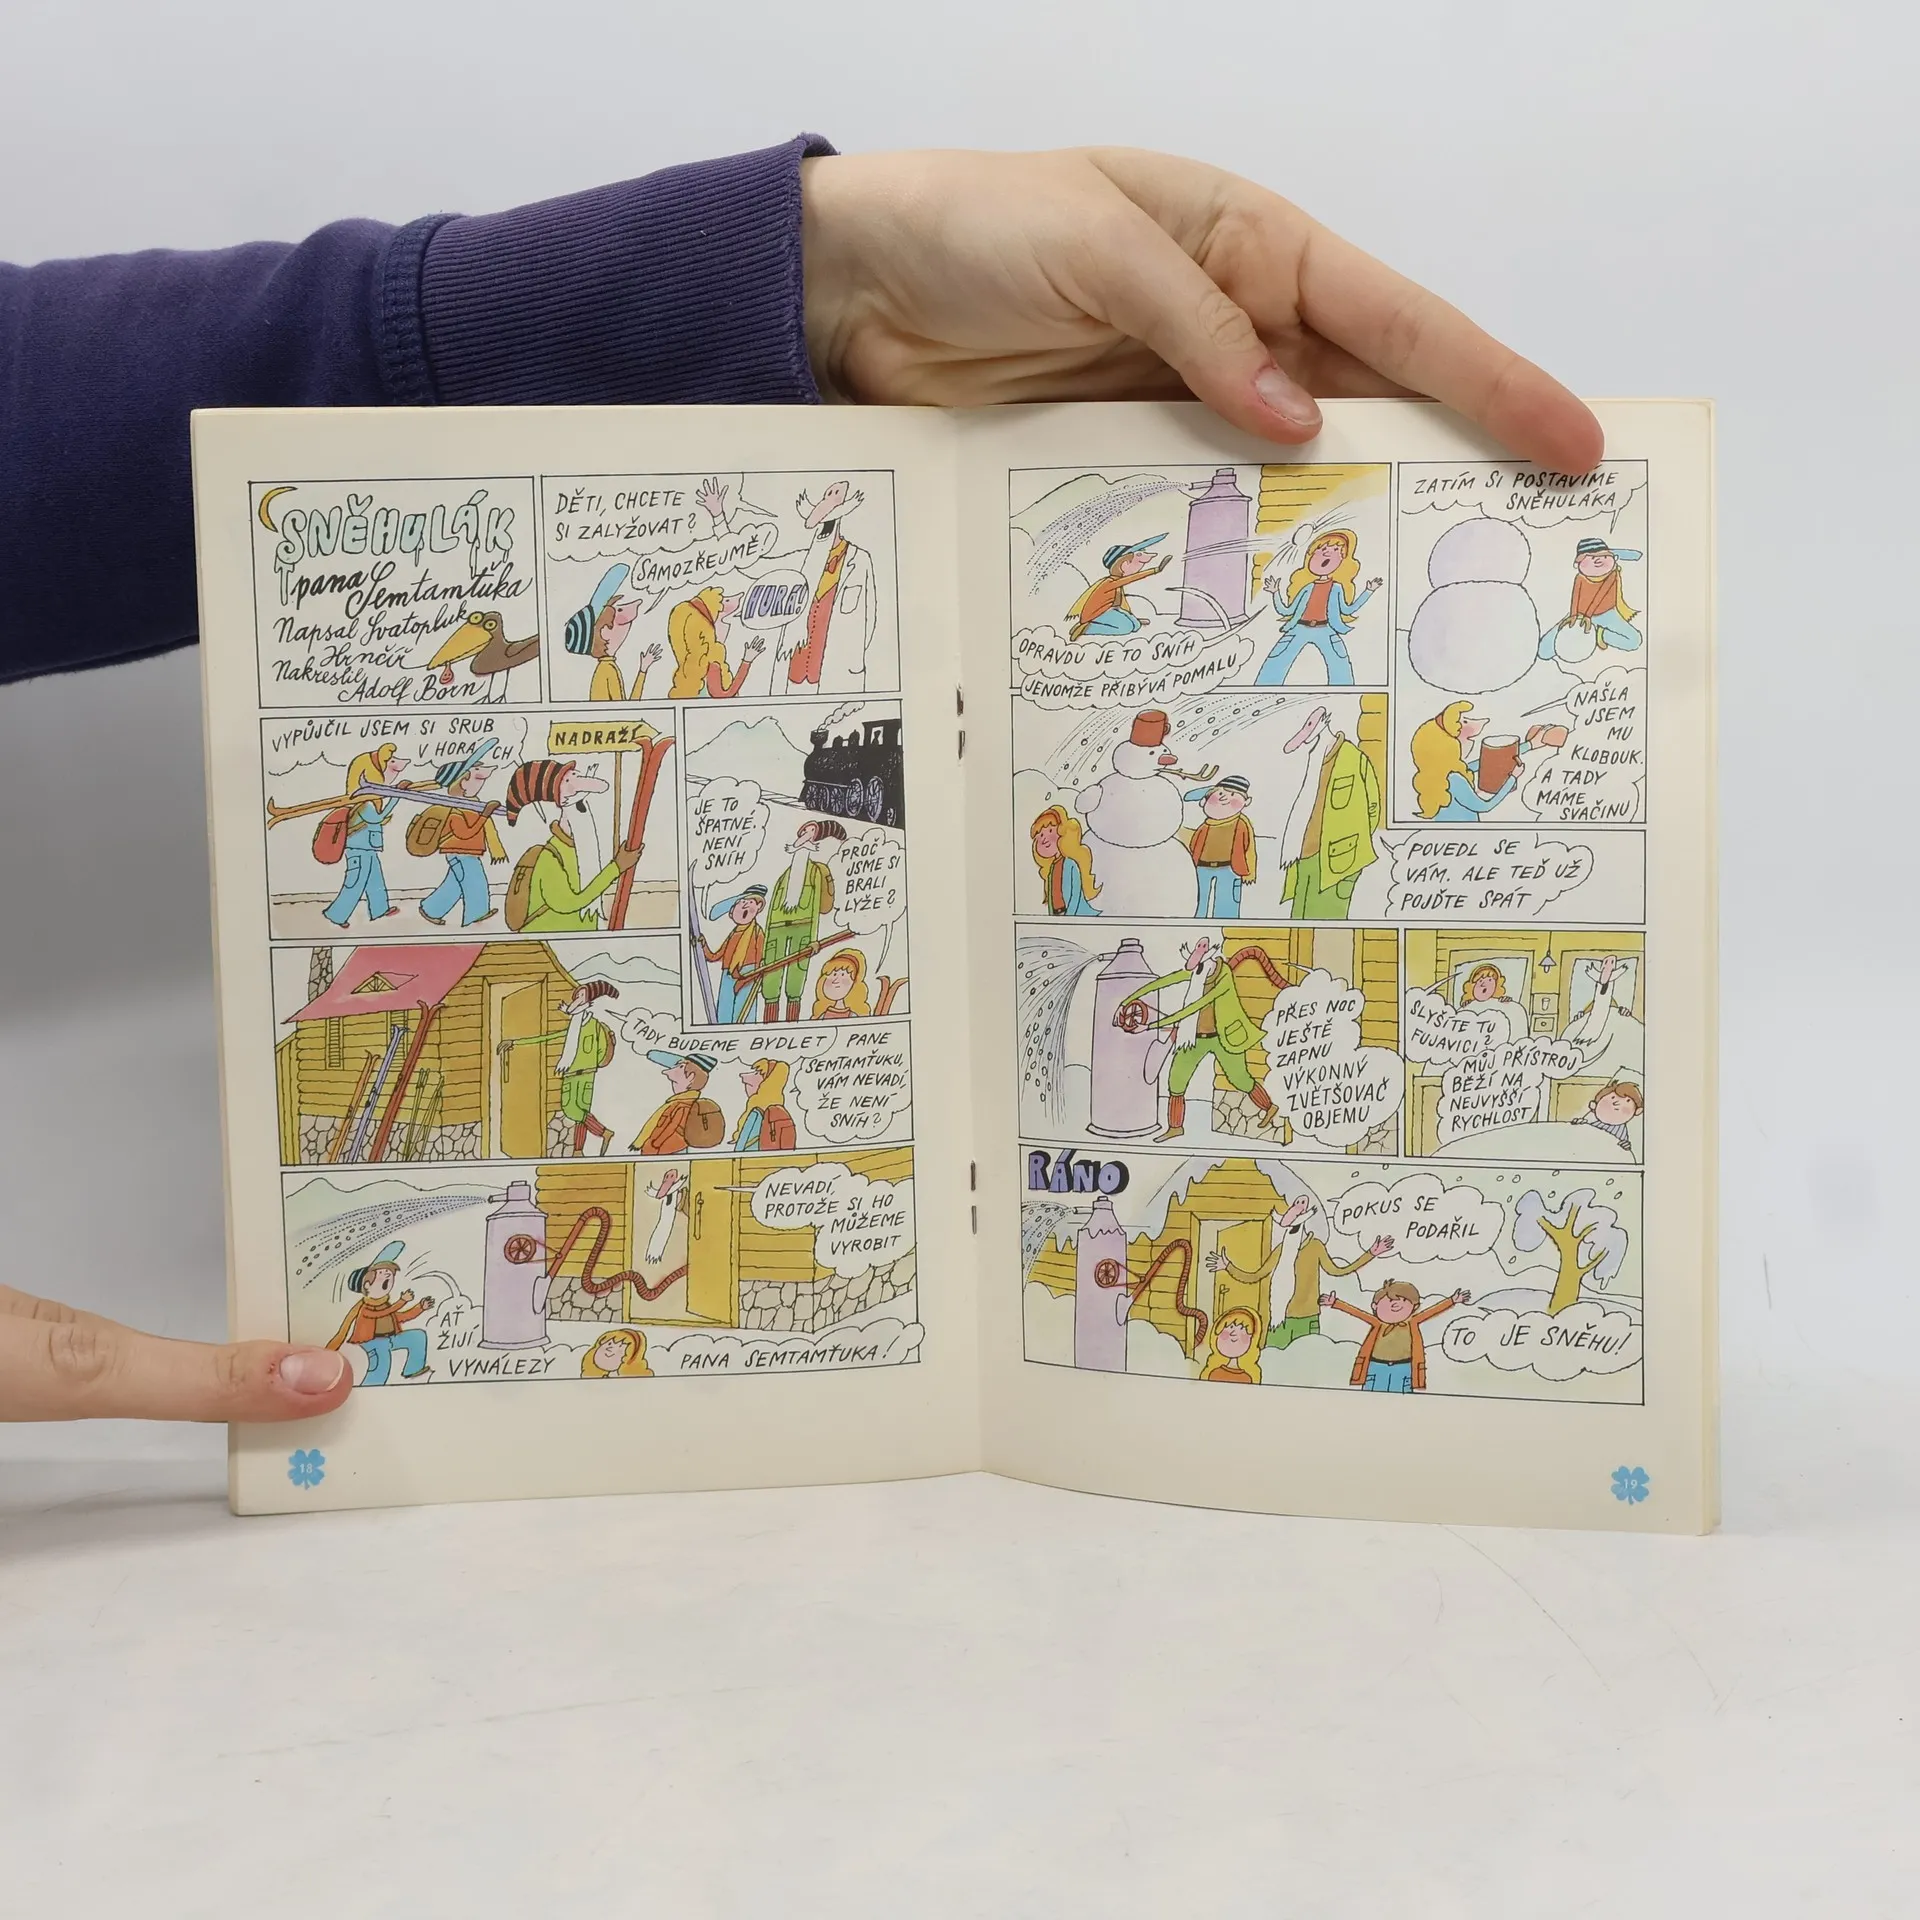 SNĚHULÁK
pana Semtamťuka
Napsal Svatopluk
Hrnčíř
Nakreslil
Adolf Born
DĚTI, CHCETE
SI ZALYŽOVAT?
SAMOZŘEJMĚ!
HURÁ!
VYPŮJČIL JSEM SI SRUB
V HORÁCH
NÁDRAŽÍ
JE TO
ŠPATNÉ.
NENÍ
SNÍH
PROČ
JSME SI
BRALI
LYŽE?
TADY BUDEME BYDLET
PANE
SEMTAMŤUKU,
VÁM NEVADÍ,
ŽE NENÍ
SNÍH?
NEVADÍ,
PROTOŽE SI HO
MŮŽEME
VYROBIT
AŤ
ŽIJÍ
VYNÁLEZY
PANA SEMTAMŤUKA!
18
OPRAVDU JE TO SNÍH
JENOMŽE PŘIBÝVÁ POMALU
ZATÍM SI POSTAVÍME
SNĚHULÁKA
NAŠLA
JSEM
MU
KLOBOUK.
A TADY
MÁME
SVAČINU
POVEDL SE
VÁM. ALE TEĎ UŽ
POJĎTE SPÁT
PŘES NOC
JEŠTĚ
ZAPNU
VÝKONNÝ
ZVĚTŠOVAČ
OBJEMU
SLYŠÍTE TU
FUJAVICI?
MŮJ PŘÍSTROJ
BĚŽÍ NA
NEJVYŠŠÍ
RYCHLOST
RÁNO
POKUS SE
PODAŘIL
TO JE SNĚHU!
19